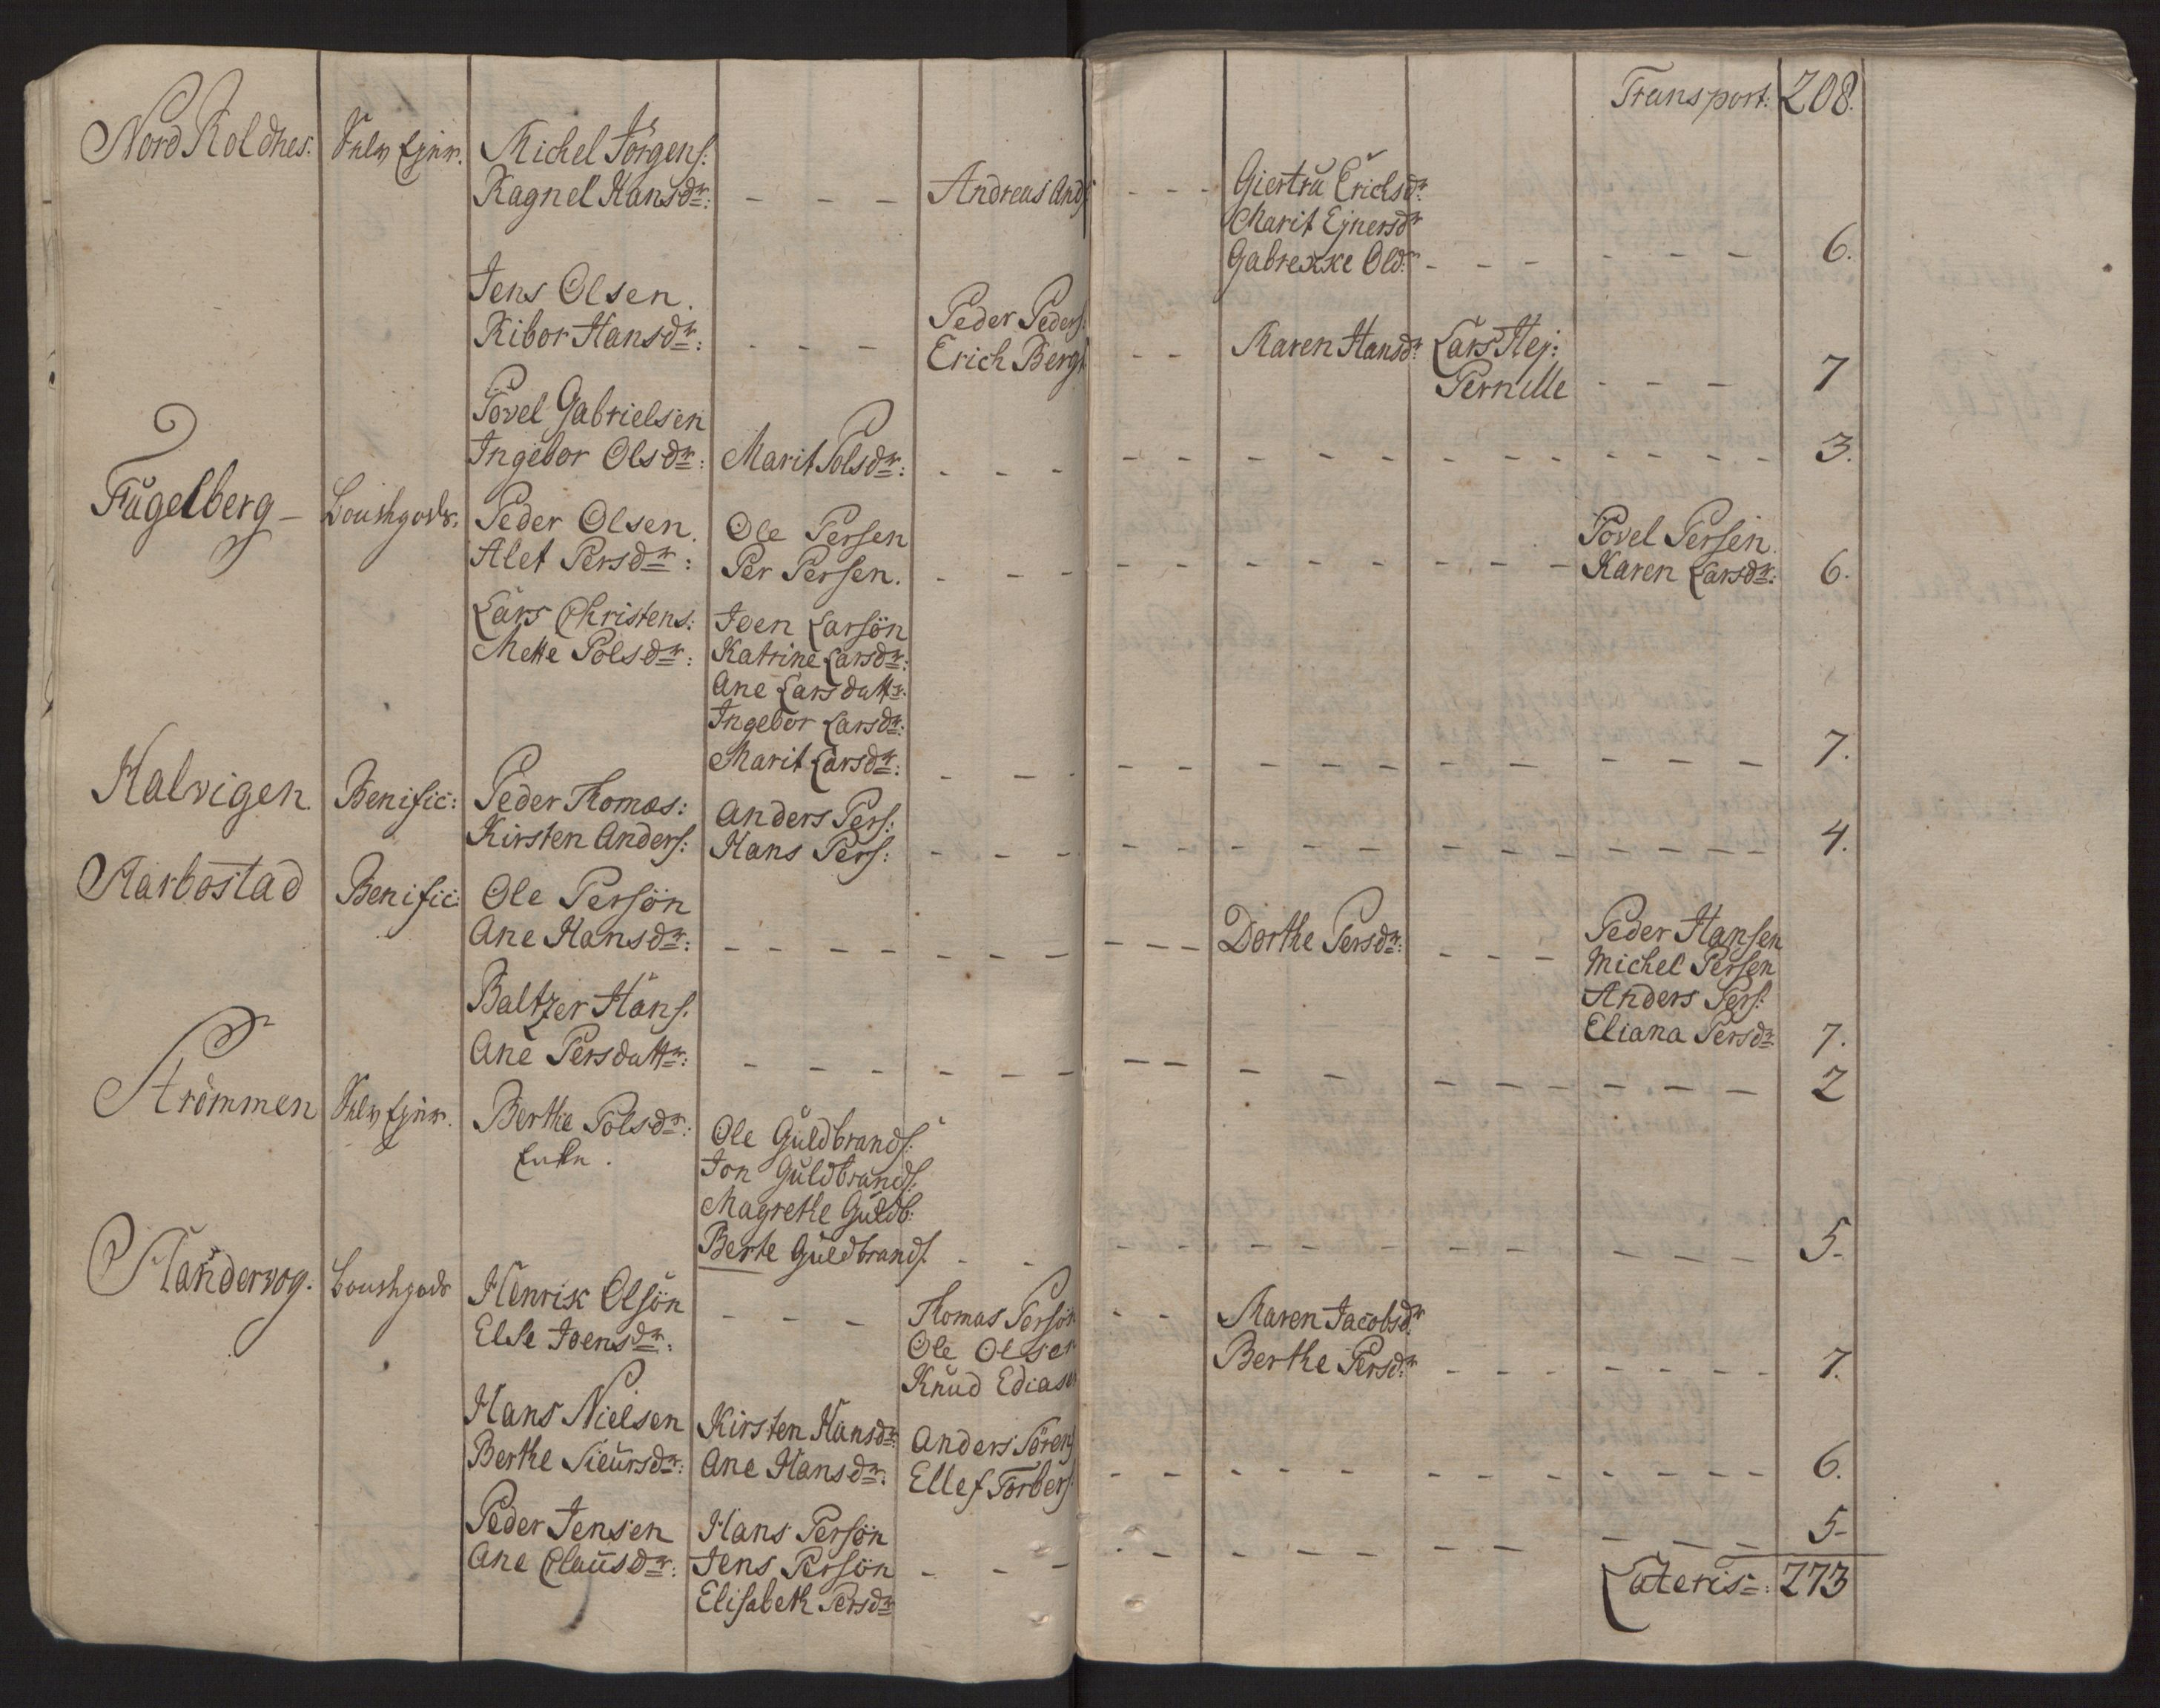 Transport: 208.
Nord Roldnes. Selv Ejer. Michel Jörgens:
Ragnel Hansdr: - - - Andreas Ands - - - Giertru Erichsdr:
Marit Ejnersdr
Gabrexke Oldr - - - - - - 6.
Jens Olsen. Peder Peders:
Ribor Hansdr: - - - Erich Berg - - Maren Hansdr Lars Hej:
Pernille - - - 7
Povel Gabrielsen
Ingebor Olsdr: Marit Polsdr: - - - 3.
Fugelberg - Peder Olsen. Ole Persen Povel Persen.
Alet Persdr: Per Persen. - - - Karen Larsdr: 6.
Lars Christens: Joen Larsön
Mette Polsdr: Katrine Larsdr:
Ane Larsdattr:
Ingebor Larsdr:
Marit Larsdr: - - - 7.
Kalvigen. Benific: Peder Thomas: Anders Pers:
Kirsten Anders: Hans Pers: - - - 4.
Aarbostad Benific: Ole Persön
Ane Hansdr: - - - Dorthe Persdr: - - - Peder Hansen
Michel Persen
Anders Pers:
Eliana Persdr 7.
Baltzer Hans.
Ane Persdattr: - - - 2
Strömmen Selv Ejer. Berthe Polsdr: Ole Guldbrands:
Enke. Jon Guldbrands:
Magrethe Guldb:
Berte Guldbrands. - - - 5-
Handervog. Henrik Olsön - - - Thomas Persön - - Maren Jacobsdr
Else Joensdr: Ole Olsen Berthe Persdr: - - - 7.
Knud Ediasen
Hans Nielsen Kirsten Hansdr: Anders Sörens
Berthe Sieursdr: Ane Hansdr: Ellef Torbers - - - 6.
Peder Jensen Hans Persön - - - 5-
Ane Clausdr: Jens Persön - - -
Elisabeth Persdr
Lateris: 273